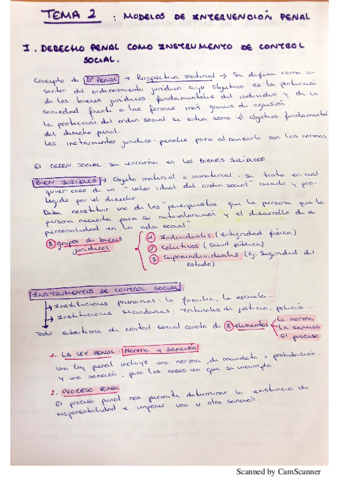 TEMA 2 : MODELOS DE INTERVENCIÓN PENAL
I. DERECHO PENAL COMO INSTRUMENTO DE CONTROL
SOCIAL.
Concepto de Dº PENAL → Perspectiva material → Se define como un
sector del ordenamiento jurídico cuyo objetivo es la protección
de los bienes jurídicos fundamentales del individuo y de la
sociedad frente a las formas más graves de agresión.
La protección del orden social se erige como el objetivo fundamental
del derecho penal.
Los instrumentos jurídico-penales para alcanzarlo son las normas
El ORDEN SOCIAL se encarna en los BIENES JURÍDICOS
BIEN JURÍDICO → Objeto material o inmaterial. Se trata en cual
quier caso de un "valor ideal del orden social" creado y pro-
tegido por el derecho.
Debe constituir uno de los "presupuestos que la persona que la
persona necesita para su autorrealización y el desarrollo de su
personalidad en la vida social"
③ grupos de bienes jurídicos
① Individuales (integridad física)
② Colectivos (Salud pública)
③ Supraindividuales (Ej: Seguridad del
estado)
INSTRUMENTOS DE CONTROL SOCIAL
→ Instituciones primarias: la familia, la escuela...
→ Instituciones secundarias: Tribunales de justicia, policía...
Todo subsistema de control social consta de ③ elementos
la norma
la sanción
el proceso
1. LA LEY PENAL (Norma y sanción)
Una ley penal incluye una norma, de mandato o prohibición.
y una sanción, para los casos en que se incumpla.
2. PROCESO PENAL
El proceso penal nos permite determinar la existencia de
responsabilidad e imponer una u otra sanción.
Scanned by CamScanner